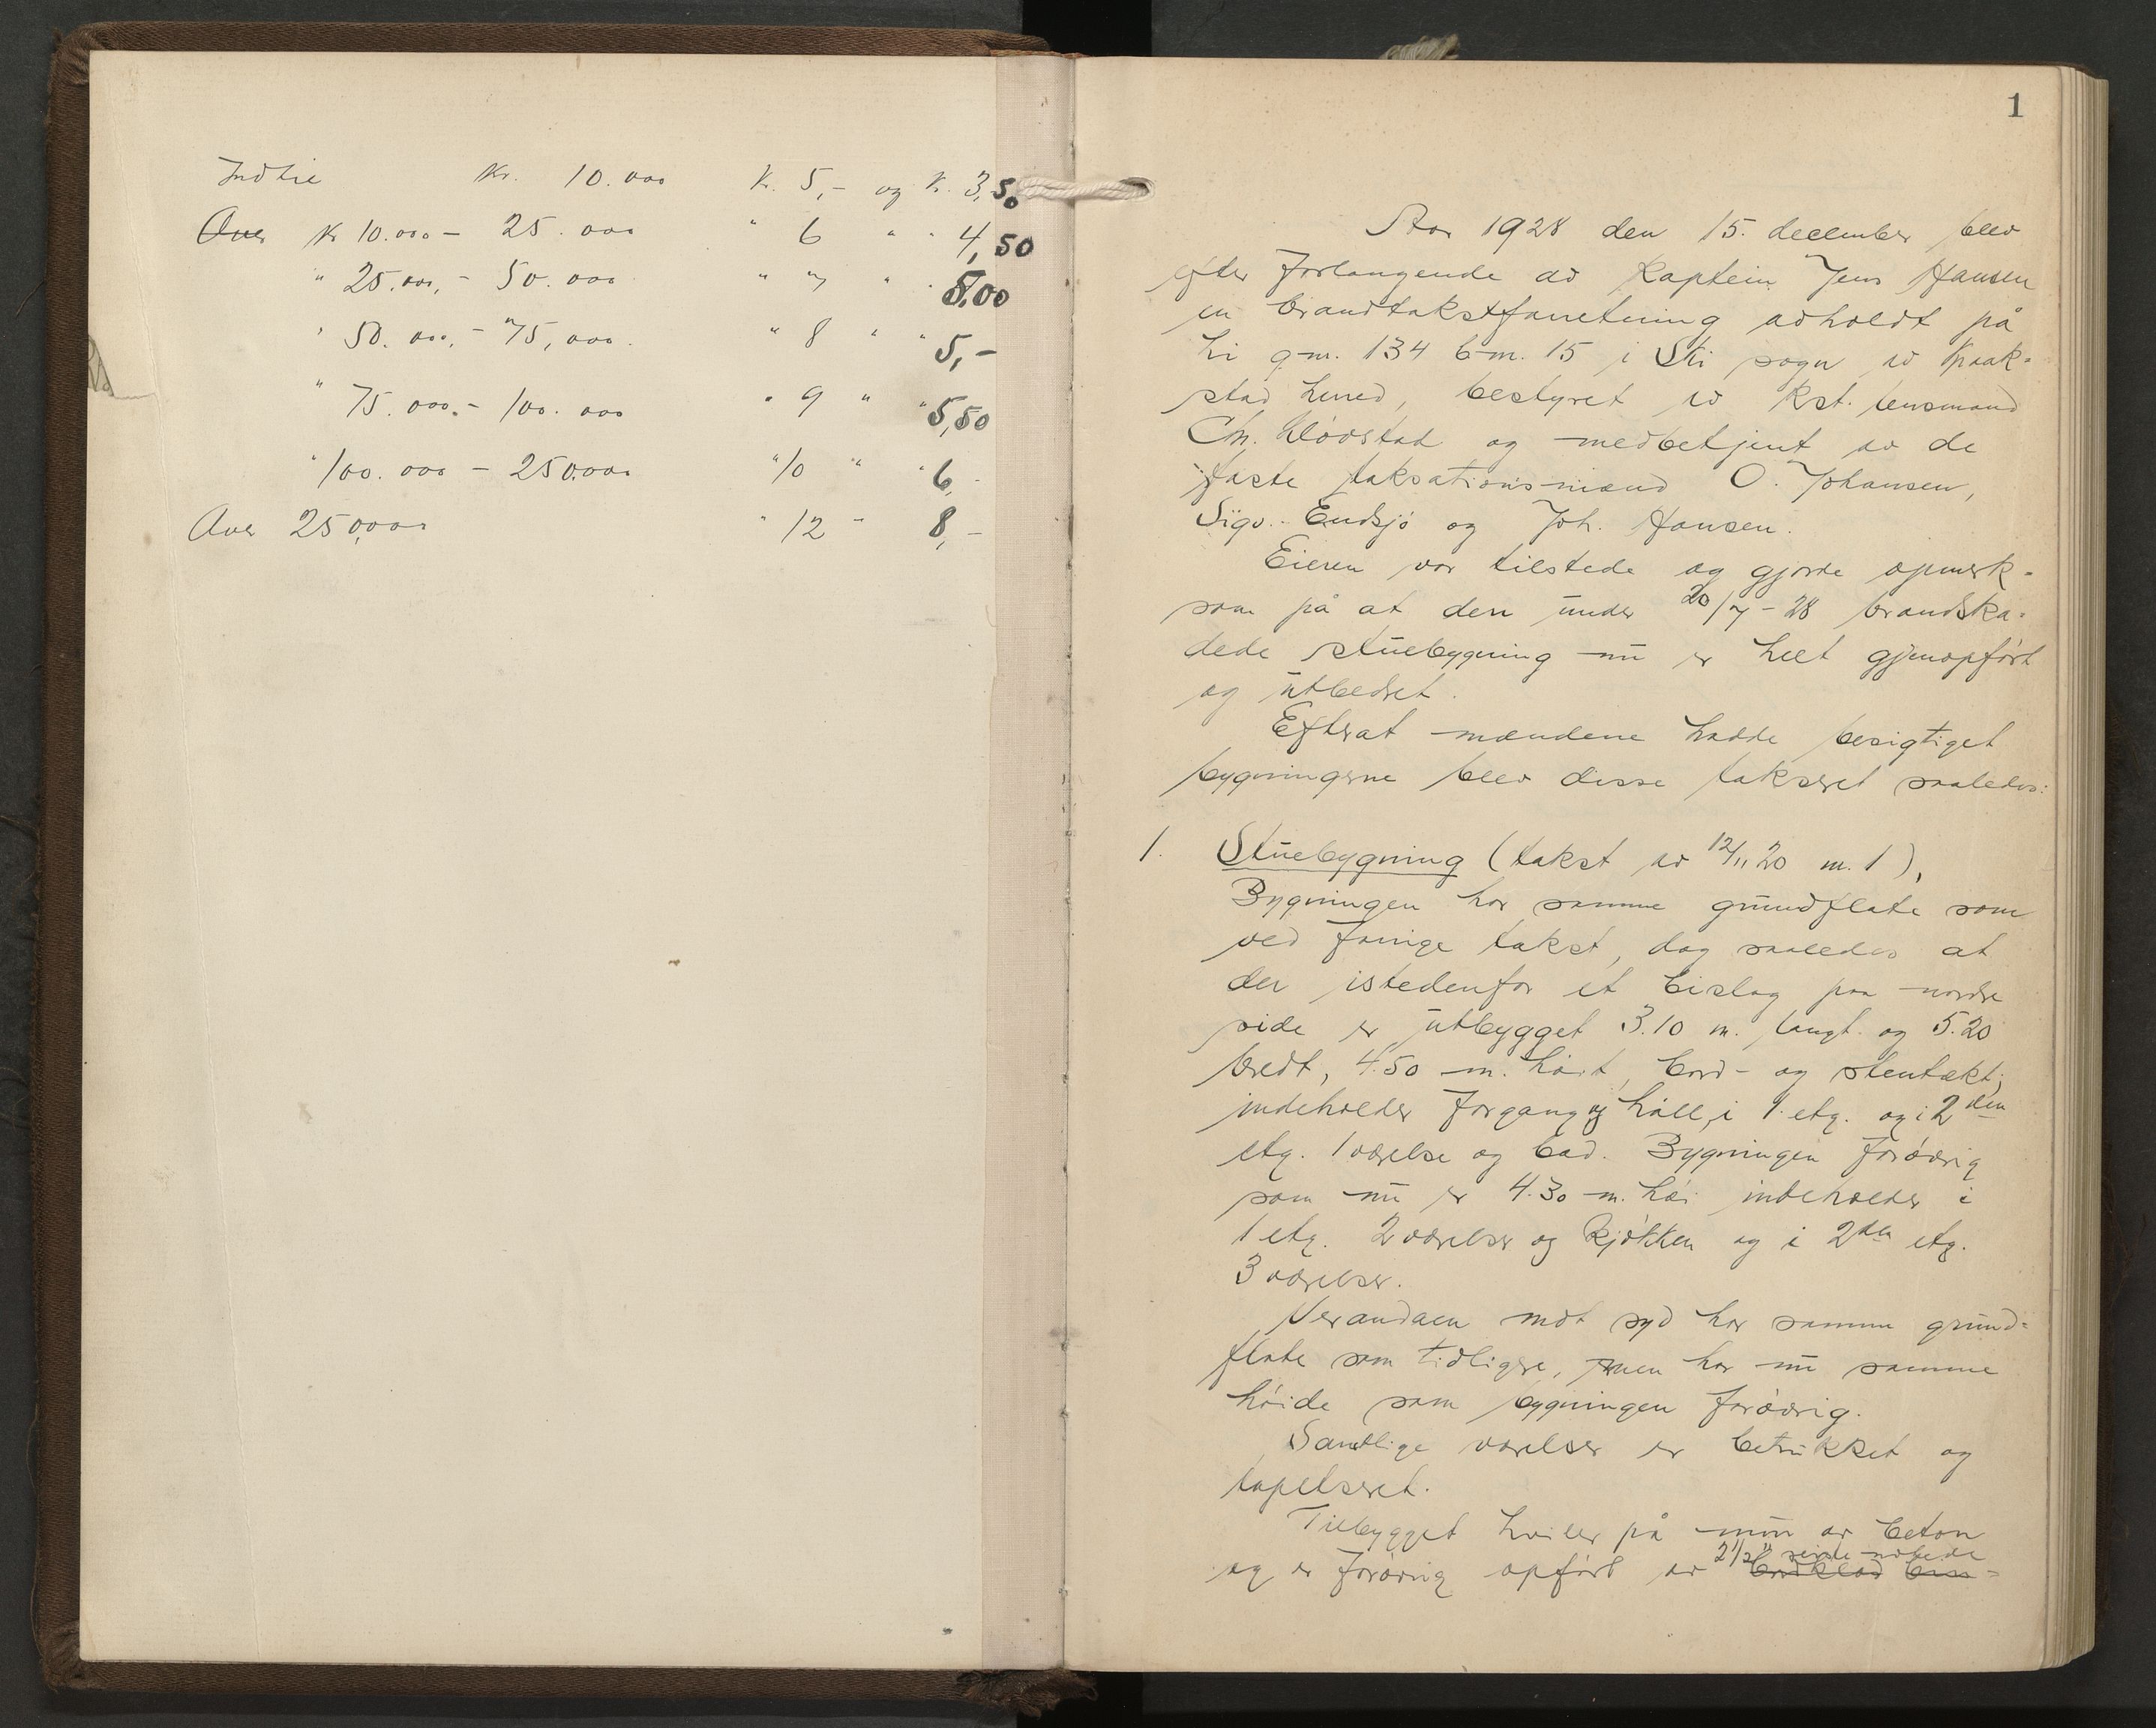 Indtil Kr. 10.000 Kr. 5,- og Kr. 3,50
Over Kr 10.000 - 25.000 " 6 " " 4,50
" 25.000,- 50.000 " 7 " " 5,00
" 50.000,- 75,000. " 8 " " 5,-
" 75.000.- 100.000 " 9 " " 5,50
" 100.000 - 250.000 " 10 " " 6,-
Over 250,000 " 12 - 8,-
1
Aar 1928 den 15. december blev
efter forlangende av Kaptein Jens Hansen
en brandtakstforretning avholdt på
gm. 134 bm. 15 i Ski sogn av Kraak-
stad herred, bestyret av kst. lensmand
Chr. Kløvstad og medbetjent av de
faste taksationsmænd O. Johansen,
Sigv. Endsjø og Joh. Hansen.
Eieren var tilstede og gjorde opmerk-
som på at den under 20/7-28 brandska-
dede stuebygning nu er helt gjenopført
og utbedret.
Efterat mændene hadde besigtiget
bygningerne blev disse taksert saaledes:
1. Stuebygning (takst av 12/11 20 nr. 1),
Bygningen har samme grundflate som
ved forrige takst, dog saaledes at
der istedenfor et bislag paa nordre
side er utbygget 3.10 m. langt og 5.20
bredt, 4.50 m. høit, bord- og stentækt;
indeholder forgang og hall i 1. etg. og i 2den
etg. 1 værelse og bad. Bygningen forøvrig
som nu er 4.30 m. høi indeholder i
1 etg. 2 værelser og kjøkken og i 2den etg.
3 værelser.
Verandaen mot syd har samme grund-
flate som tidligere, men har nu samme
høide som bygningen forøvrig.
Samtlige værelser er betrukket og
tapetseret.
Tilbygget hviler på mur av beton
og er forøvrig opført av 2 1/2" reiste
bordklæd